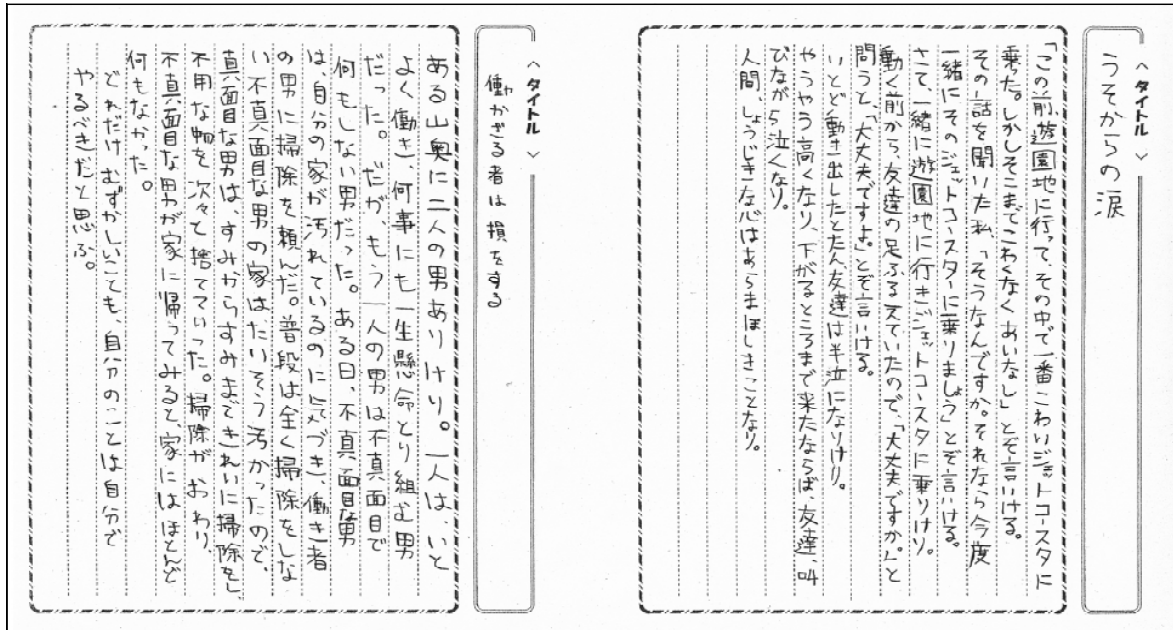 <タイトル>
うそからの涙
「この前、遊園地に行って、その中で一番こわいジェットコースタに
乗った。しかしそこまでこわくなくあいなし」とぞ言いける。
その話を聞いた私、「そうなんですか。それなら今度
一緒にそのジェットコースターに乗りましょう」とぞ言いける。
さて、一緒に遊園地に行きジェットコースタに乗りけり。
動く前から、友達の足ふるえていたので、「大丈夫ですか。」と
問うと、「大丈夫ですよ」とぞ言いける。
いとど動き出したとたん友達は半泣になりけり。
やうやう高くなり、下がるところまで来たならば、友達、叫
びながら泣くなり。
人間、しょうじきな心はあらまほしきことなり。
<タイトル>
働かざる者は損をする
ある山奥に二人の男ありけり。一人は、いと
よく働き、何事にも一生懸命とり組む男
だった。だが、もう一人の男は不真面目で
何もしない男だった。ある日、不真面目な男
は、自分の家が汚れているのに気づき、働き者
の男に掃除を頼んだ。普段は全く掃除をしな
い不真面目な男の家はたいそう汚かったので、
真面目な男は、すみからすみまできれいに掃除をし、
不用な物を次々と捨てていった。掃除がおわり、
不真面目な男が家に帰ってみると、家にはほとんど
何もなかった。
どれだけむずかしいことも、自分のことは自分で
やるべきだと思ふ。